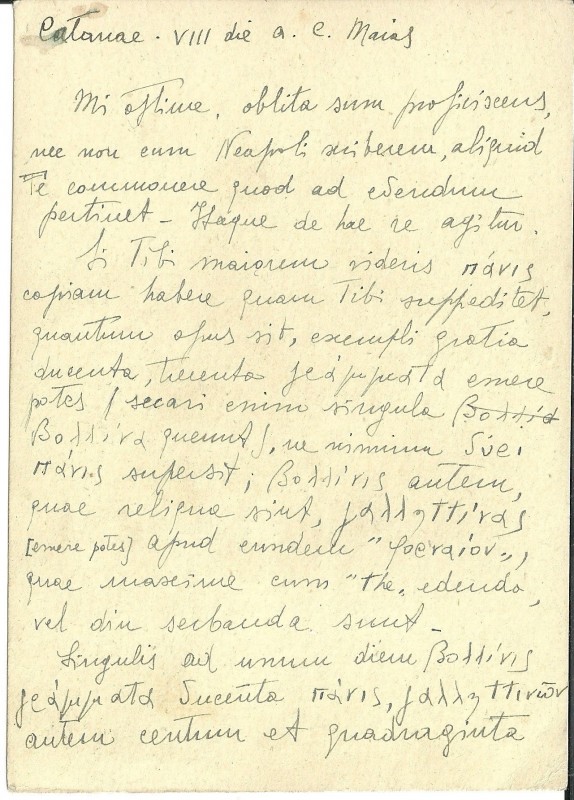 Catanae . VIII die a. C. Maias
Mi optime, oblita sum proficiscens,
nec non cum Neapoli scriberem, aliquid
Te commonere quod ad edendum
pertinet - Itaque de hac re agitur.
Si Tibi maiorem videris πάνις
copiam habere quam Tibi suppeditet,
quantum opus sit, exempli gratia
ducenta, trecenta γράμματα emere
potes / secari enim singula βολλία
βολλίνα queunt/, ne nimium
πάνις supersit; βολλίνις autem,
quae reliqua sint, γαλληττίνας
[emere potes] apud eundem "φορναίον„,
quae maxime cum "the„ edenda,
vel diu serbanda sunt -
Singulis ad unum diem βολλίνις
γράμματα ducenta πάνις, γαλληττινῶν
autem centum et quadraginta